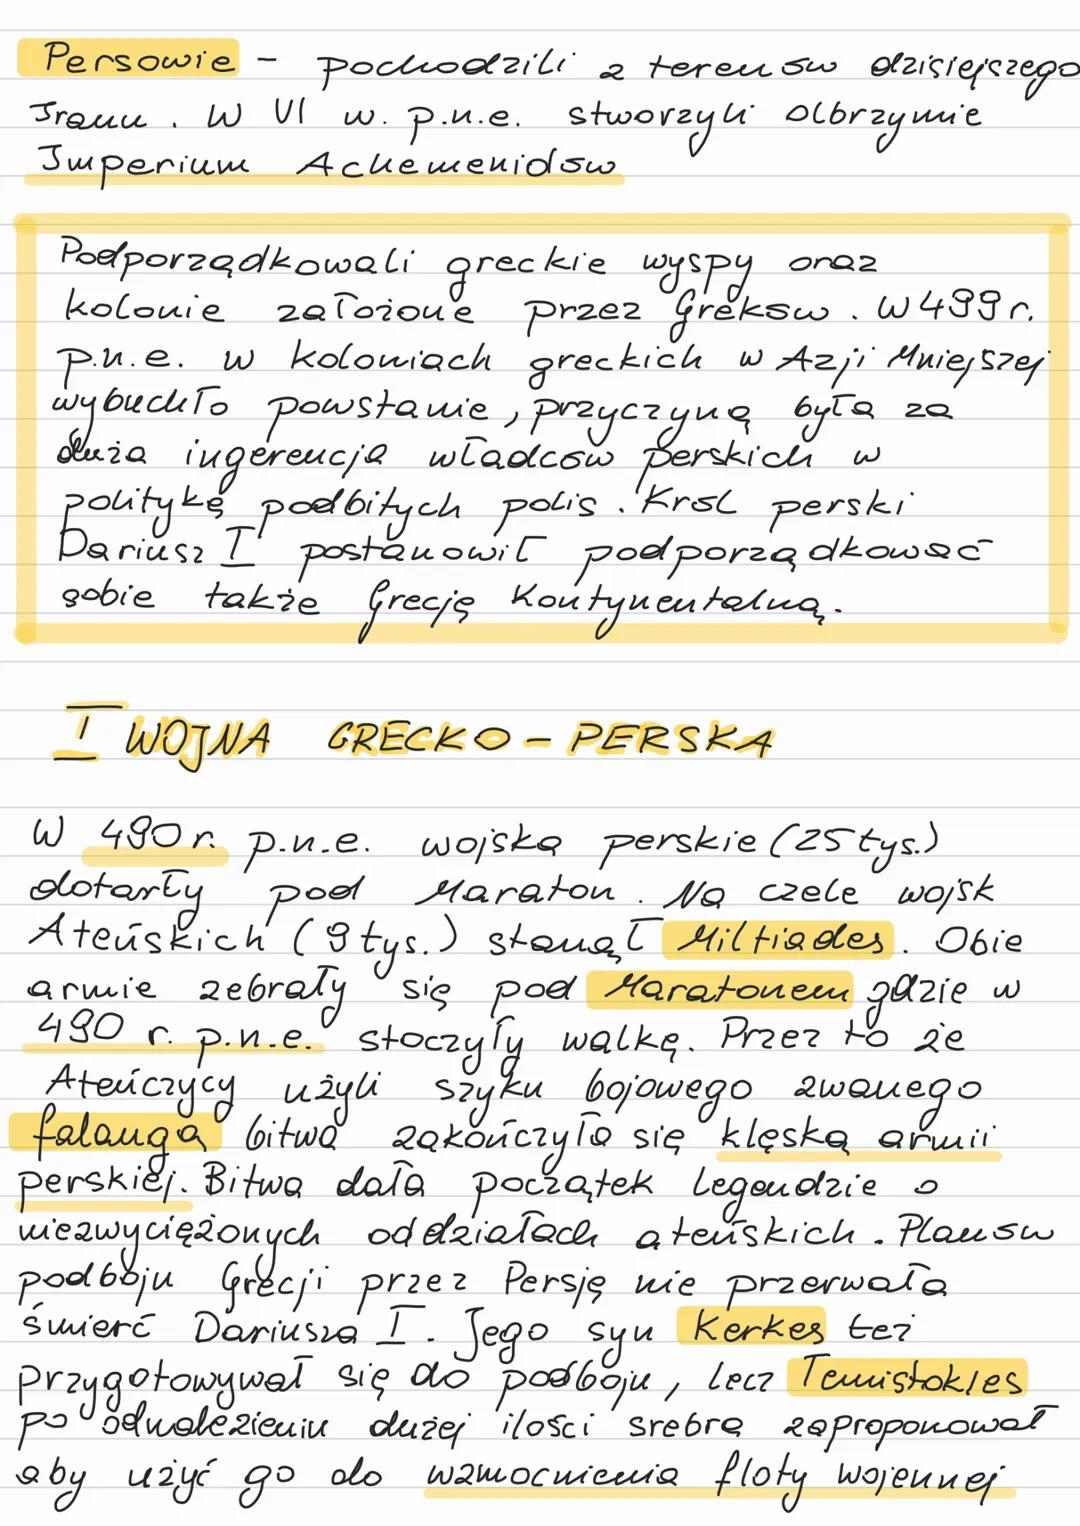 Persowie - pochodzili z terenów dzisiejszego
Iranu. W VI w. p.n.e. stworzyli olbrzymie
Imperium Achemenidów
Podporządkowali greckie wyspy oraz
kolonie założone przez Greków. W 499 r.
p.n.e. w koloniach greckich w Azji Mniejszej
wybuchło powstanie, przyczyną była za
duża ingerencja władców perskich w
politykę podbitych polis. Król perski
Dariusz I postanowił podporządkować
sobie także Grecję Kontynentalną.
I WOJNA GRECKO - PERSKA
W 490 r. p.n.e. wojska perskie (25 tys.)
dotarły pod Maraton. Na czele wojsk
Ateńskich (9 tys.) stanął Miltiades. Obie
armie zebrały się pod Maratonem gdzie w
490 r. p.n.e. stoczyły walkę. Przez to że
Ateńczycy użyli szyku bojowego zwanego
falangą bitwa zakończyła się klęską armii
perskiej. Bitwa dała początek legendzie o
niezwyciężonych oddziałach ateńskich. Planów
podboju Grecji przez Persję nie przerwała
śmierć Dariusza I. Jego syn Kerkes też
przygotowywał się do podboju, lecz Temistokles
po odnalezieniu dużej ilości srebra zaproponował
aby użyć go do wzmocnienia floty wojennej